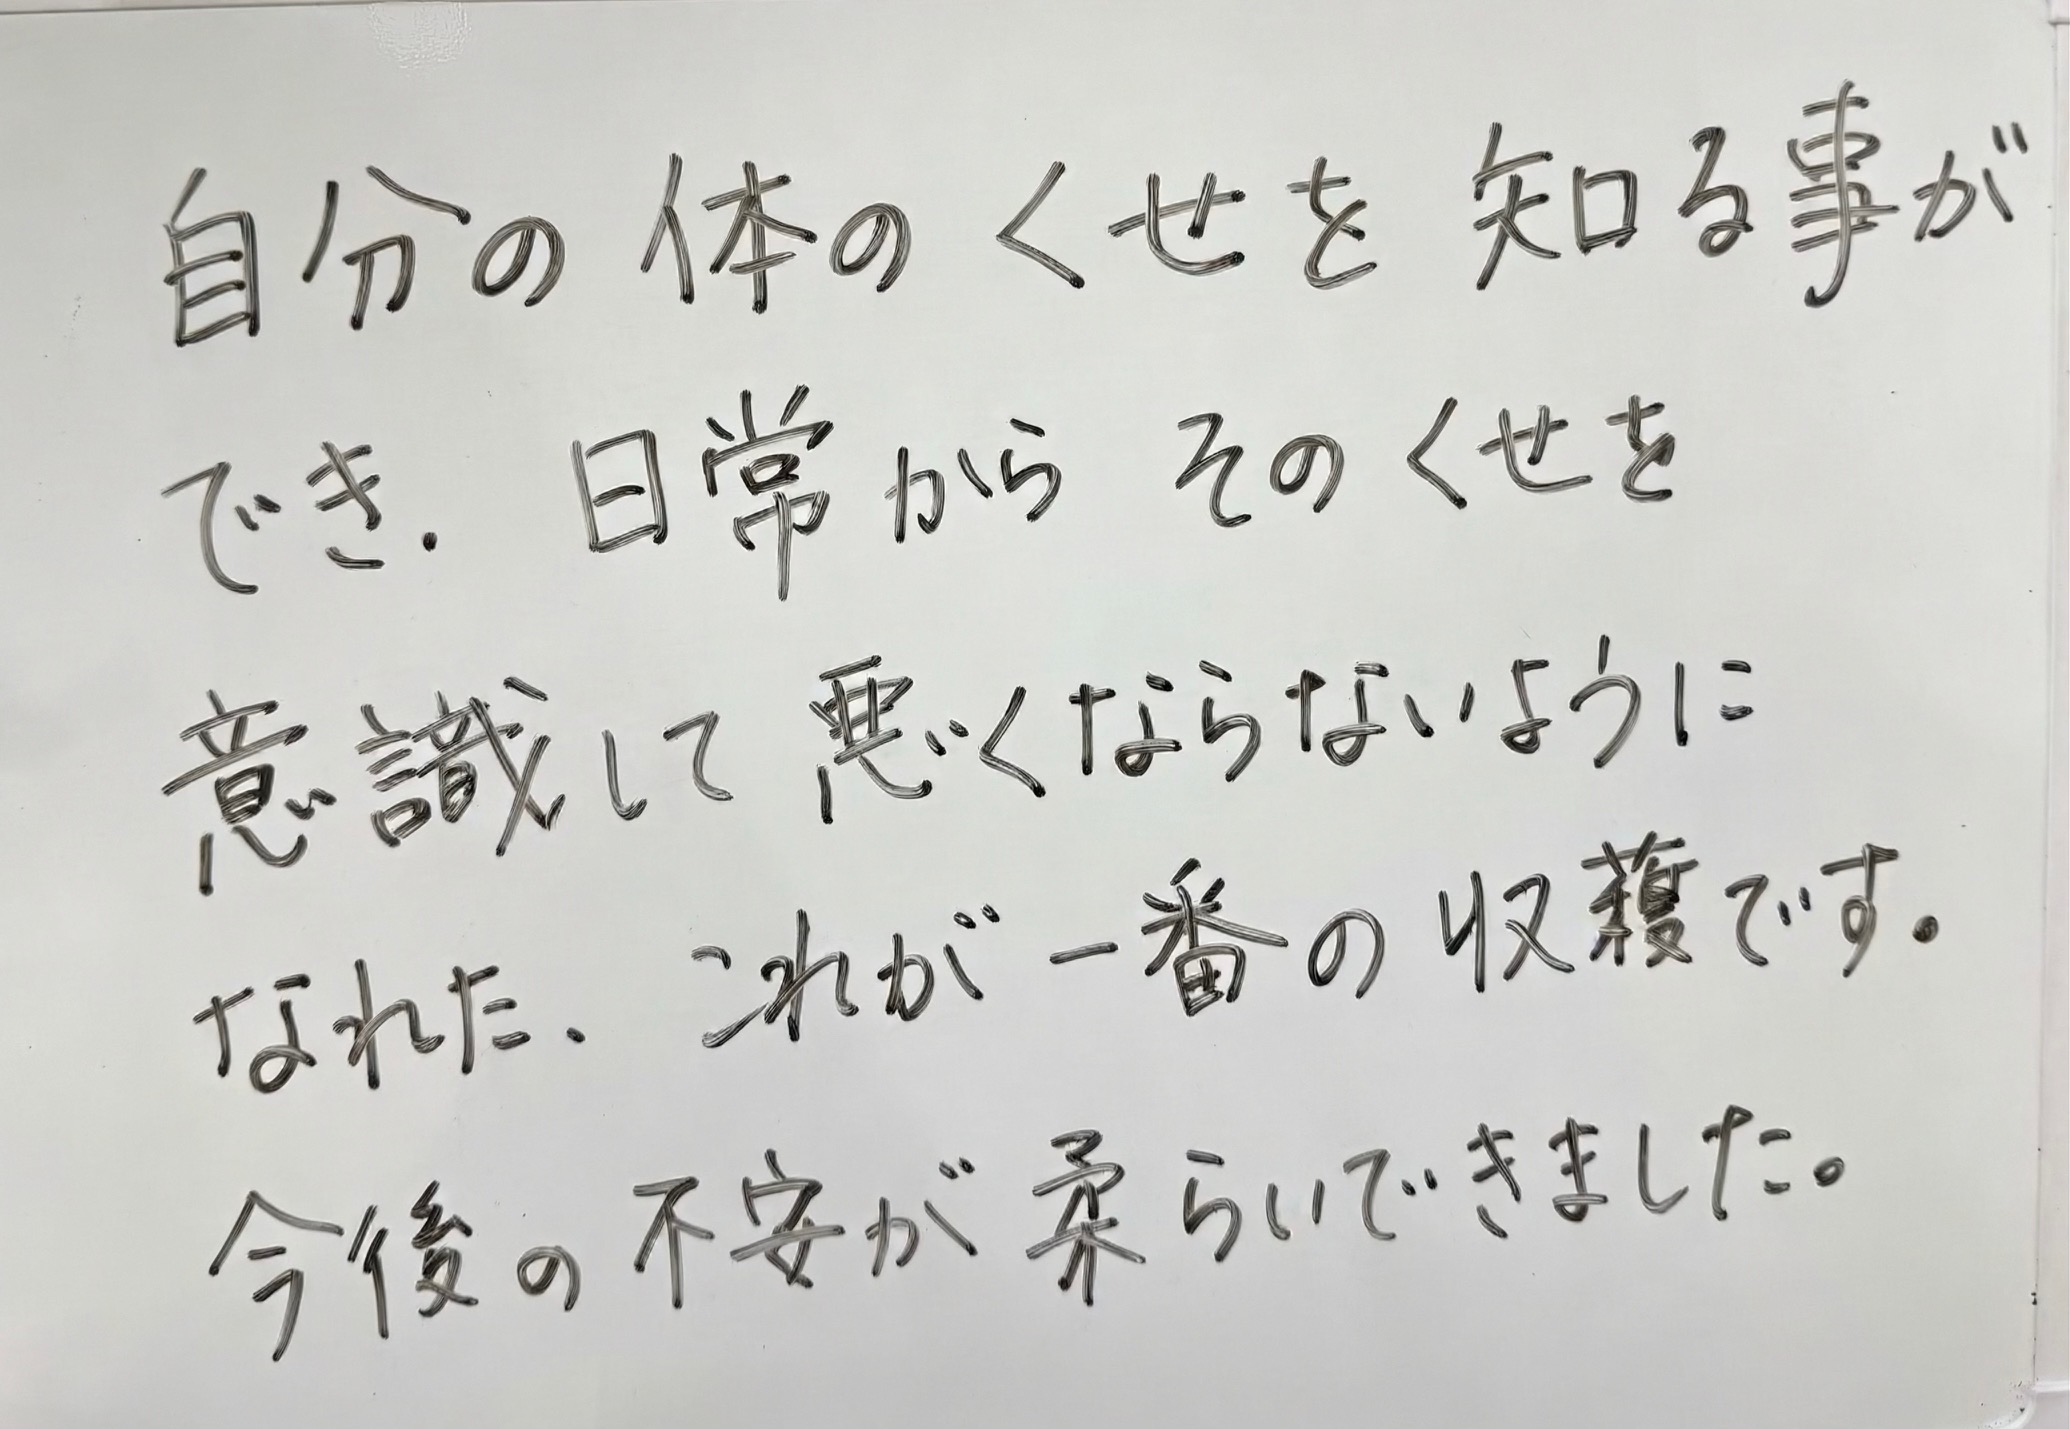 自分の体のくせを知る事が
でき、日常からそのくせを
意識して悪くならないように
なれた、これが一番の収穫です。
今後の不安が柔らいできました。